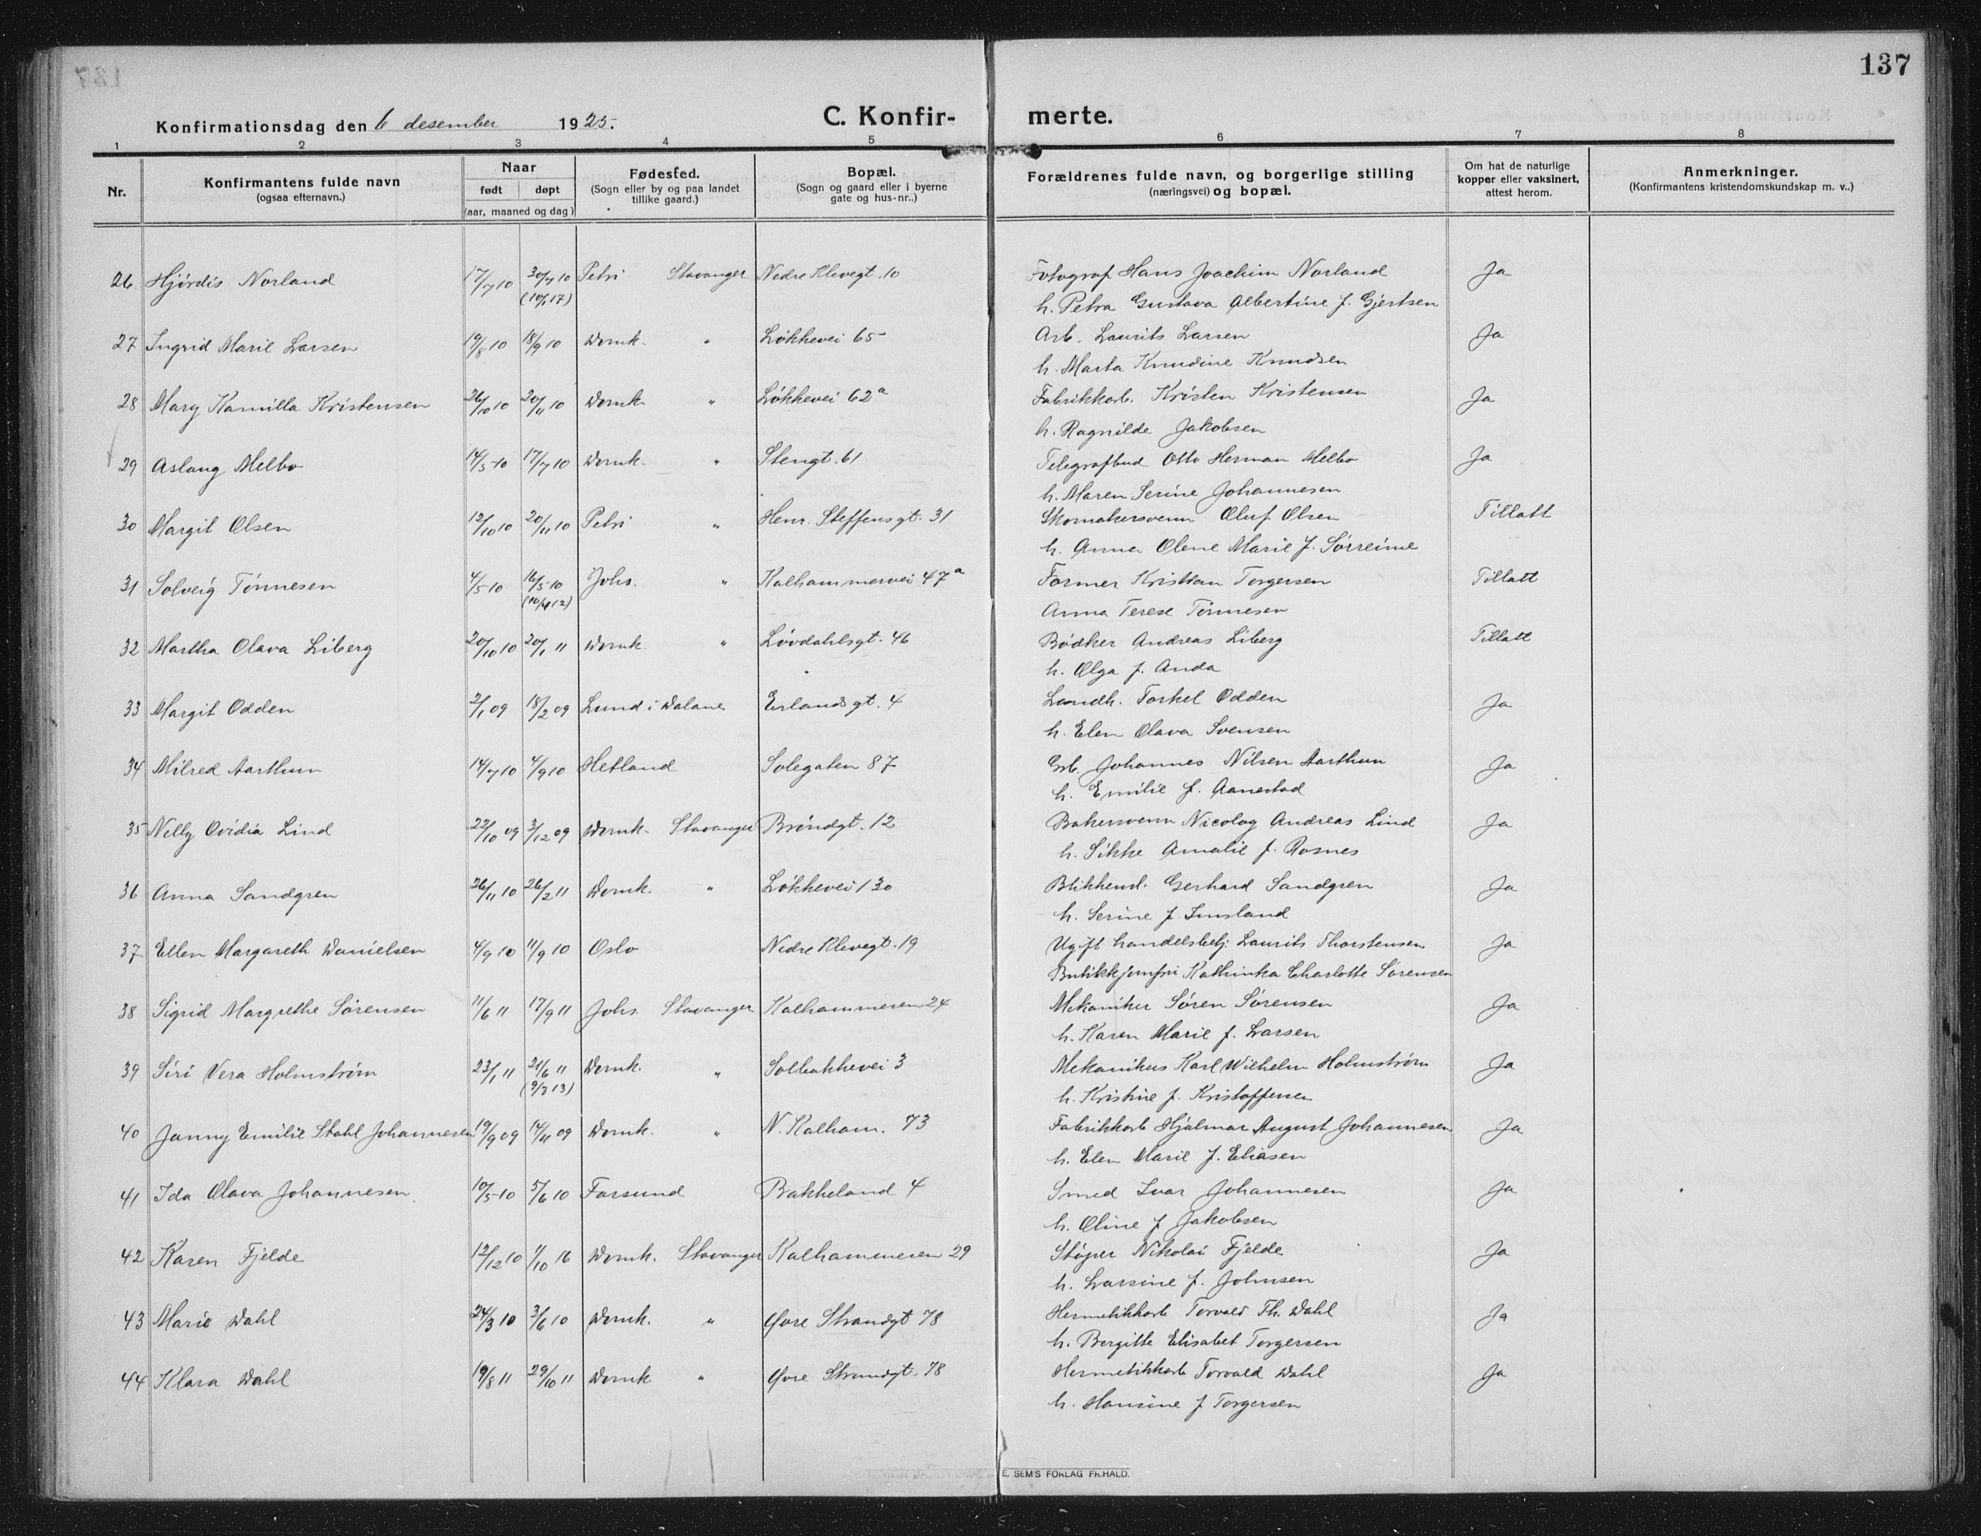 137
Konfirmationsdag den 6 desember 1925.
C. Konfir- merte.
1 2 3 4 5 6 7 8
Nr.
Konfirmantens fulde navn
(ogsaa efternavn.)
Naar
født døpt
(aar, maaned og dag)
Fødested.
(Sogn eller by og paa landet
tillike gaard.)
Bopæl.
(Sogn og gaard eller i byerne
gate og hus-nr..)
Forældrenes fulde navn, og borgerlige stilling
(næringsvei) og bopæl.
Om hat de naturlige
kopper eller vaksinert,
attest herom.
Anmerkninger.
(Konfirmantens kristendomskundskap m. v..)
26 Hjørdis Norland 17/7 10 30/7 10 Petri Stavanger Nedre Klevegt. 10 Fotograf Hans Joachim Norland Ja
(10/1 17) h. Petra Gustava Albertine f. Gjertsen
27 Ingrid Marie Larsen 19/8 10 18/9 10 Domk. " Løkkevei 65 Arb. Laurits Larsen Ja
h. Marta Knudine Knudsen
28 Mary Kamilla Kristensen 26/10 10 20/11 10 Domk " Løkkevei 62a Fabrikkarb. Kristen Kristensen Ja
h. Ragnilde Jakobsen
29 Aslaug Melbo 14/5 10 17/7 10 Domk. " Stengt. 61 Telegrafbud Otto Herman Melbo Ja
h. Maren Serine Johannesen
30 Margit Olsen 12/10 10 20/11 10 Petri " Henr. Steffensgt. 31 Skomakersvenn Oluf Olsen Tillatt
h. Anna Olene Marie f. Sørreime
31 Solveig Tønnesen 4/5 10 16/5 10 Johs. " Kalhammervei 47a Former Kristian Torgersen Tillatt
(10/4 12) Anna Terese Tønnesen
32 Martha Olava Liberg 20/10 10 20/1 11 Domk. " Løvdahlsgt. 46 Bødker Andreas Liberg Tillatt
h. Olga f. Anda
33 Margit Odden 2/1 09 18/2 09 Lund i Dalane Erlandsgt. 4 Landh. Torkel Odden Ja
h. Elen Olava Svensen
34 Milred Aarthun 14/7 10 4/9 10 Hetland Solegaten 87 Arb. Johannes Nilsen Aarthun Ja
h. Emilie f. Aanestad
35 Nelly Ovidia Lind 22/10 09 3/12 09 Domk. Stavanger Brøndgt. 12 Bakersvenn Nicolay Andreas Lind Ja
h. Sikke Amalie f. Rosnes
36 Anna Sandgren 26/11 10 26/2 11 Domk. " Løkkevei 130 Blikkensl. Gerhard Sandgren Ja
h. Serine f. Imsland
37 Ellen Margareth Danielsen 4/9 10 11/9 10 Oslo Nedre Klevegt. 19 Ugift handelsbetj. Laurits Thorstensen Ja
Butikkjomfri Kathinka Charlotte Sørensen
38 Sigrid Margrethe Sørensen 11/6 11 17/9 11 Johs. Stavanger Kalhammeren 24 Mekaniker Søren Sørensen Ja
h. Karen Marie f. Larsen
39 Siri Vera Holmstrøm 23/1 11 21/6 11 Domk. " Solbakkevei 3 Mekanikus Karl Wilhelm Holmstrøm Ja
(9/3 13) h. Kristine f. Kristoffersen
40 Janny Emilie Stahl Johannesen 19/9 09 14/11 09 Domk. " N. Kalham. 73 Fabrikkarb Hjalmar August Johannesen Ja
h. Elen Marie f. Eliasen
41 Ida Olava Johannesen 10/5 10 5/6 10 Farsund Bakkeland 4 Smed Ivar Johannesen Ja
h. Oline f Jakobsen
42 Karen Fjelde 12/12 10 1/10 16 Domk. Stavanger Kalhammeren 29 Støper Nikolai Fjelde Ja
h. Larsine f. Johnsen
43 Marie Dahl 24/3 10 3/6 10 Domk. " Øvre Strandgt 78 Hermetikkarb Torvald Th. Dahl Ja
h. Bergitte Elisabet Torgersen
44 Klara Dahl 19/8 11 29/10 11 Domk " Øvre Strandgt. 78 Hermetikkarb Torvald Dahl Ja
h. Hansine f Torgersen
E. SEM'S FORLAG FR.HALD.